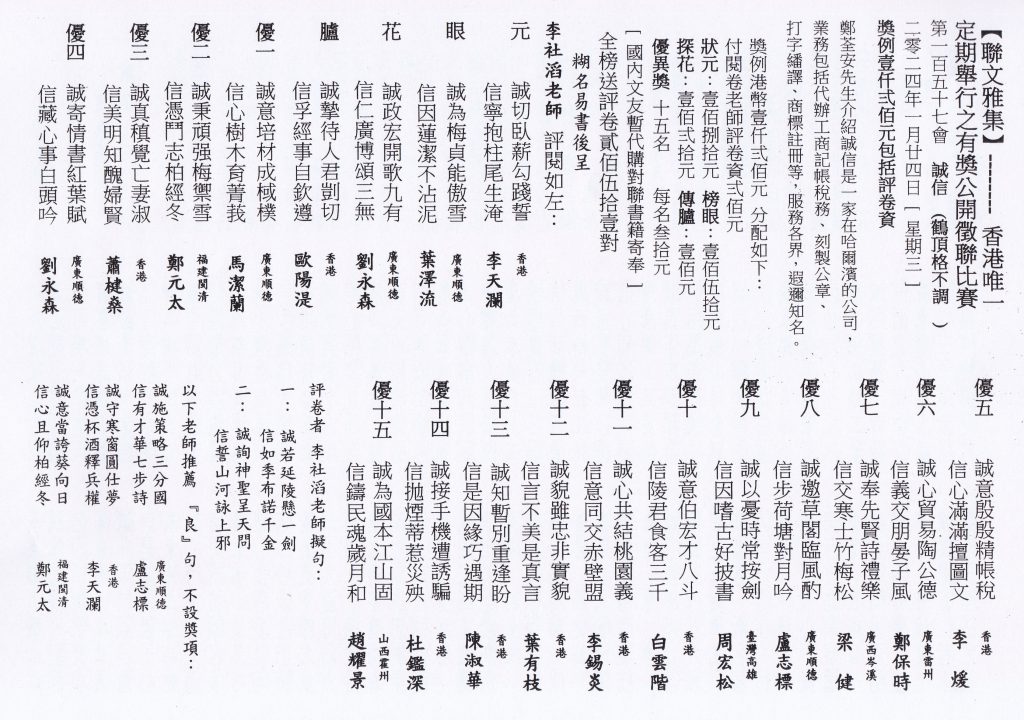 【聯文雅集】-------- 香港唯一
定期舉行之有獎公開徵聯比賽
第一百五十七會 誠信 （鶴頂格不調 ）
二零二四年一月廿四日［星期三］
獎例壹仟弍佰元包括評卷資
鄭荃安先生介紹誠信是一家在哈爾濱的公司，
業務包括代辦工商記帳稅務、刻製公章、
打字繙譯、商標註冊等，服務各界，遐邇知名。
獎例港幣壹仟弍佰元 分配如下：
付閱卷老師評卷資弍佰元
狀元：壹佰捌拾元 榜眼：壹佰伍拾元
探花：壹佰弍拾元 傳臚：壹佰元
優異獎 十五名 每名叁拾元
［國內文友暫代購對聯書籍寄奉］
全榜送評卷貳佰伍拾壹對
糊名易書後呈
李社滔老師 評閱如左：
元 誠切臥薪勾踐誓
信寧抱柱尾生淹 香港 李天瀾
眼 誠為梅貞能傲雪
信因蓮潔不沾泥 廣東順德 葉澤流
花 誠政宏開歌九有
信仁廣博頌三無 廣東順德 劉永森
臚 誠摯待人君剴切
信孚經事自欽遵 香港 歐陽湜
優一 誠意培材成棫樸
信心樹木育菁莪 廣東順德 馬潔蘭
優二 誠秉頑强梅禦雪
信憑鬥志柏經冬 福建閩清 鄭元太
優三 誠真稹覺亡妻淑
信美明知醜婦賢 香港 蕭楗燊
優四 誠寄情書紅葉賦
信藏心事白頭吟 廣東順德 劉永森
優五 誠意殷殷精帳稅
信心滿滿擅圖文 香港 李 煖
優六 誠心貿易陶公德
信義交朋晏子風 廣東雷州 鄭保時
優七 誠奉先賢詩禮樂
信交寒士竹梅松 廣西岑溪 梁 健
優八 誠邀草閣臨風酌
信步荷塘對月吟 廣東順德 盧志標
優九 誠以憂時常按劍
信因嗜古好披書 臺灣高雄 周宏松
優十 誠意伯宏才八斗
信陵君食客三千 香港 白雲階
優十一 誠心共結桃園義
信意同交赤壁盟 香港 李錫炎
優十二 誠貌雖忠非實貌
信言不美是真言 香港 葉有枝
優十三 誠知暫別重逢盼
信是因緣巧遇期 香港 陳淑華
優十四 誠接手機遭誘騙
信拋煙蒂惹災殃 香港 杜鑑深
優十五 誠為國本江山固
信鑄民魂歲月和 山西霍州 趙耀景
評卷者 李社滔老師擬句：
一： 誠若延陵懸一劍
信如李布諾千金
二： 誠詢神聖呈天問
信誓山河詠上邪
以下老師推薦 『良』句，不設獎項：
誠施策略三分國
信有才華七步詩 廣東順德 盧志標
誠守寒窗圓仕夢
信憑杯酒釋兵權 香港 李天瀾
誠意當誇葵向日
信心且仰柏經冬 福建閩清 鄭元太